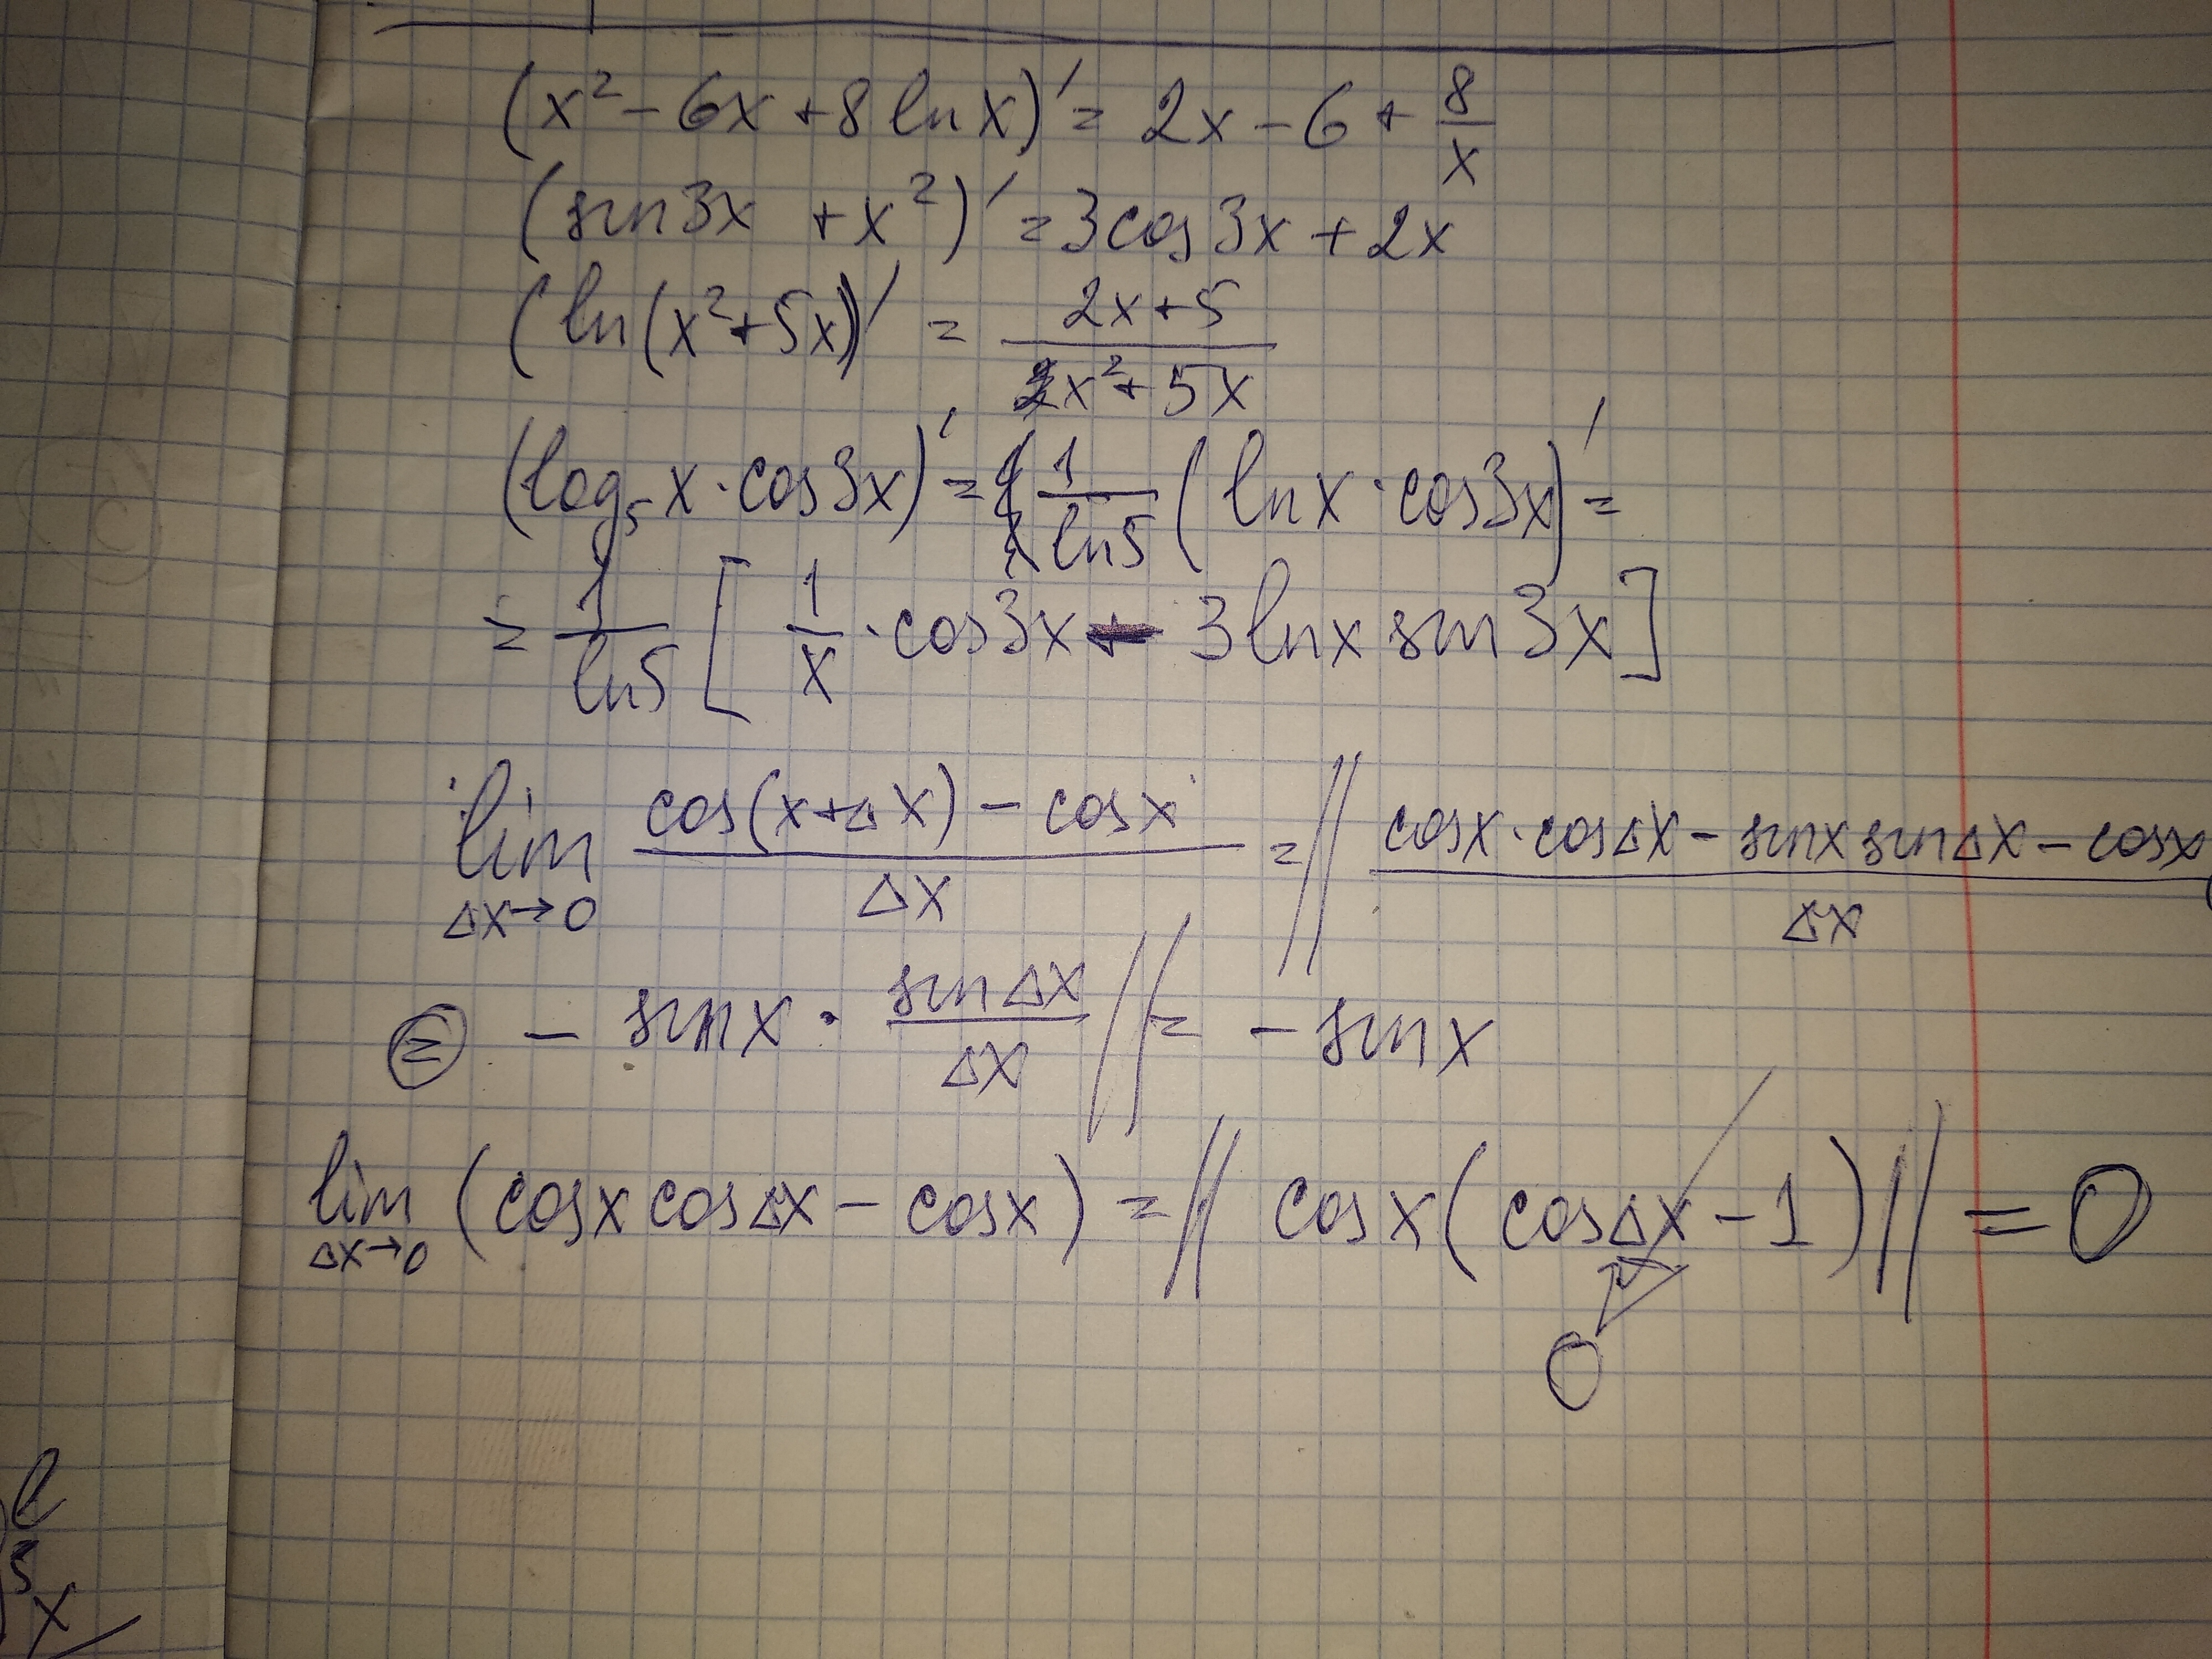 (x² - 6x + 8 ln x)' = 2x - 6 + 8/x
(sin 3x + x²)' = 3cos 3x + 2x
(ln(x² + 5x))' = (2x + 5)/(x² + 5x)
(log₅ x · cos 3x)' = 1/ln5 (ln x · cos 3x)' =
= 1/ln5 [ 1/x · cos 3x - 3 ln x sin 3x ]
lim Δx→0 (cos(x+Δx) - cos x)/Δx = // (cos x · cos Δx - sin x sin Δx - cos x)/Δx
= - sin x · sin Δx/Δx // = - sin x
lim Δx→0 (cos x cos Δx - cos x) = // cos x (cos Δx - 1) // = 0
0
l
3
x